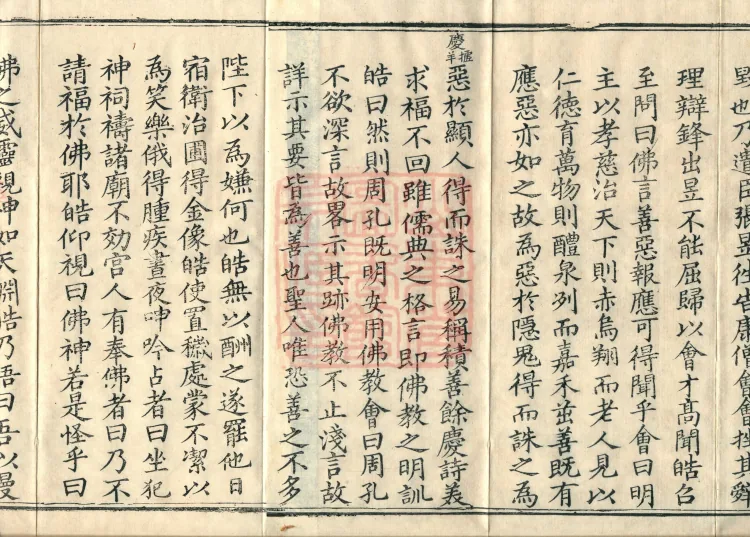 野也乃遣臣張昱徃告康僧會會挫其辤
理辯鋒出昱不能屈歸以會才高聞皓召
至問曰佛言善惡報應可得聞乎會曰明
主以孝慈治天下則赤烏翔而老人見以
仁德育萬物則醴泉列而嘉禾茁善既有
應惡亦如之故為惡於隱鬼得而誅之為
惡於顯人得而誅之易稱積善餘慶詩美
慶羊
求福不回雖儒典之格言即佛教之明訓
皓曰然則周孔既明安用佛教會曰周孔
不欲深言故畧示其跡佛教不止淺言故
詳示其要皆為善也聖人唯恐善之不多
陛下以為嫌何也皓無以酬之遂罷他日
宿衛治圃得金像皓使置穢處蒙不潔以
為笑樂俄得腫疾晝夜呻吟占者曰坐犯
神祠禱諸廟不効宮人有奉佛者曰乃不
請福於佛耶皓仰視曰佛神若是怪乎曰
佛之威靈視神如天淵皓乃悟曰吾以慢